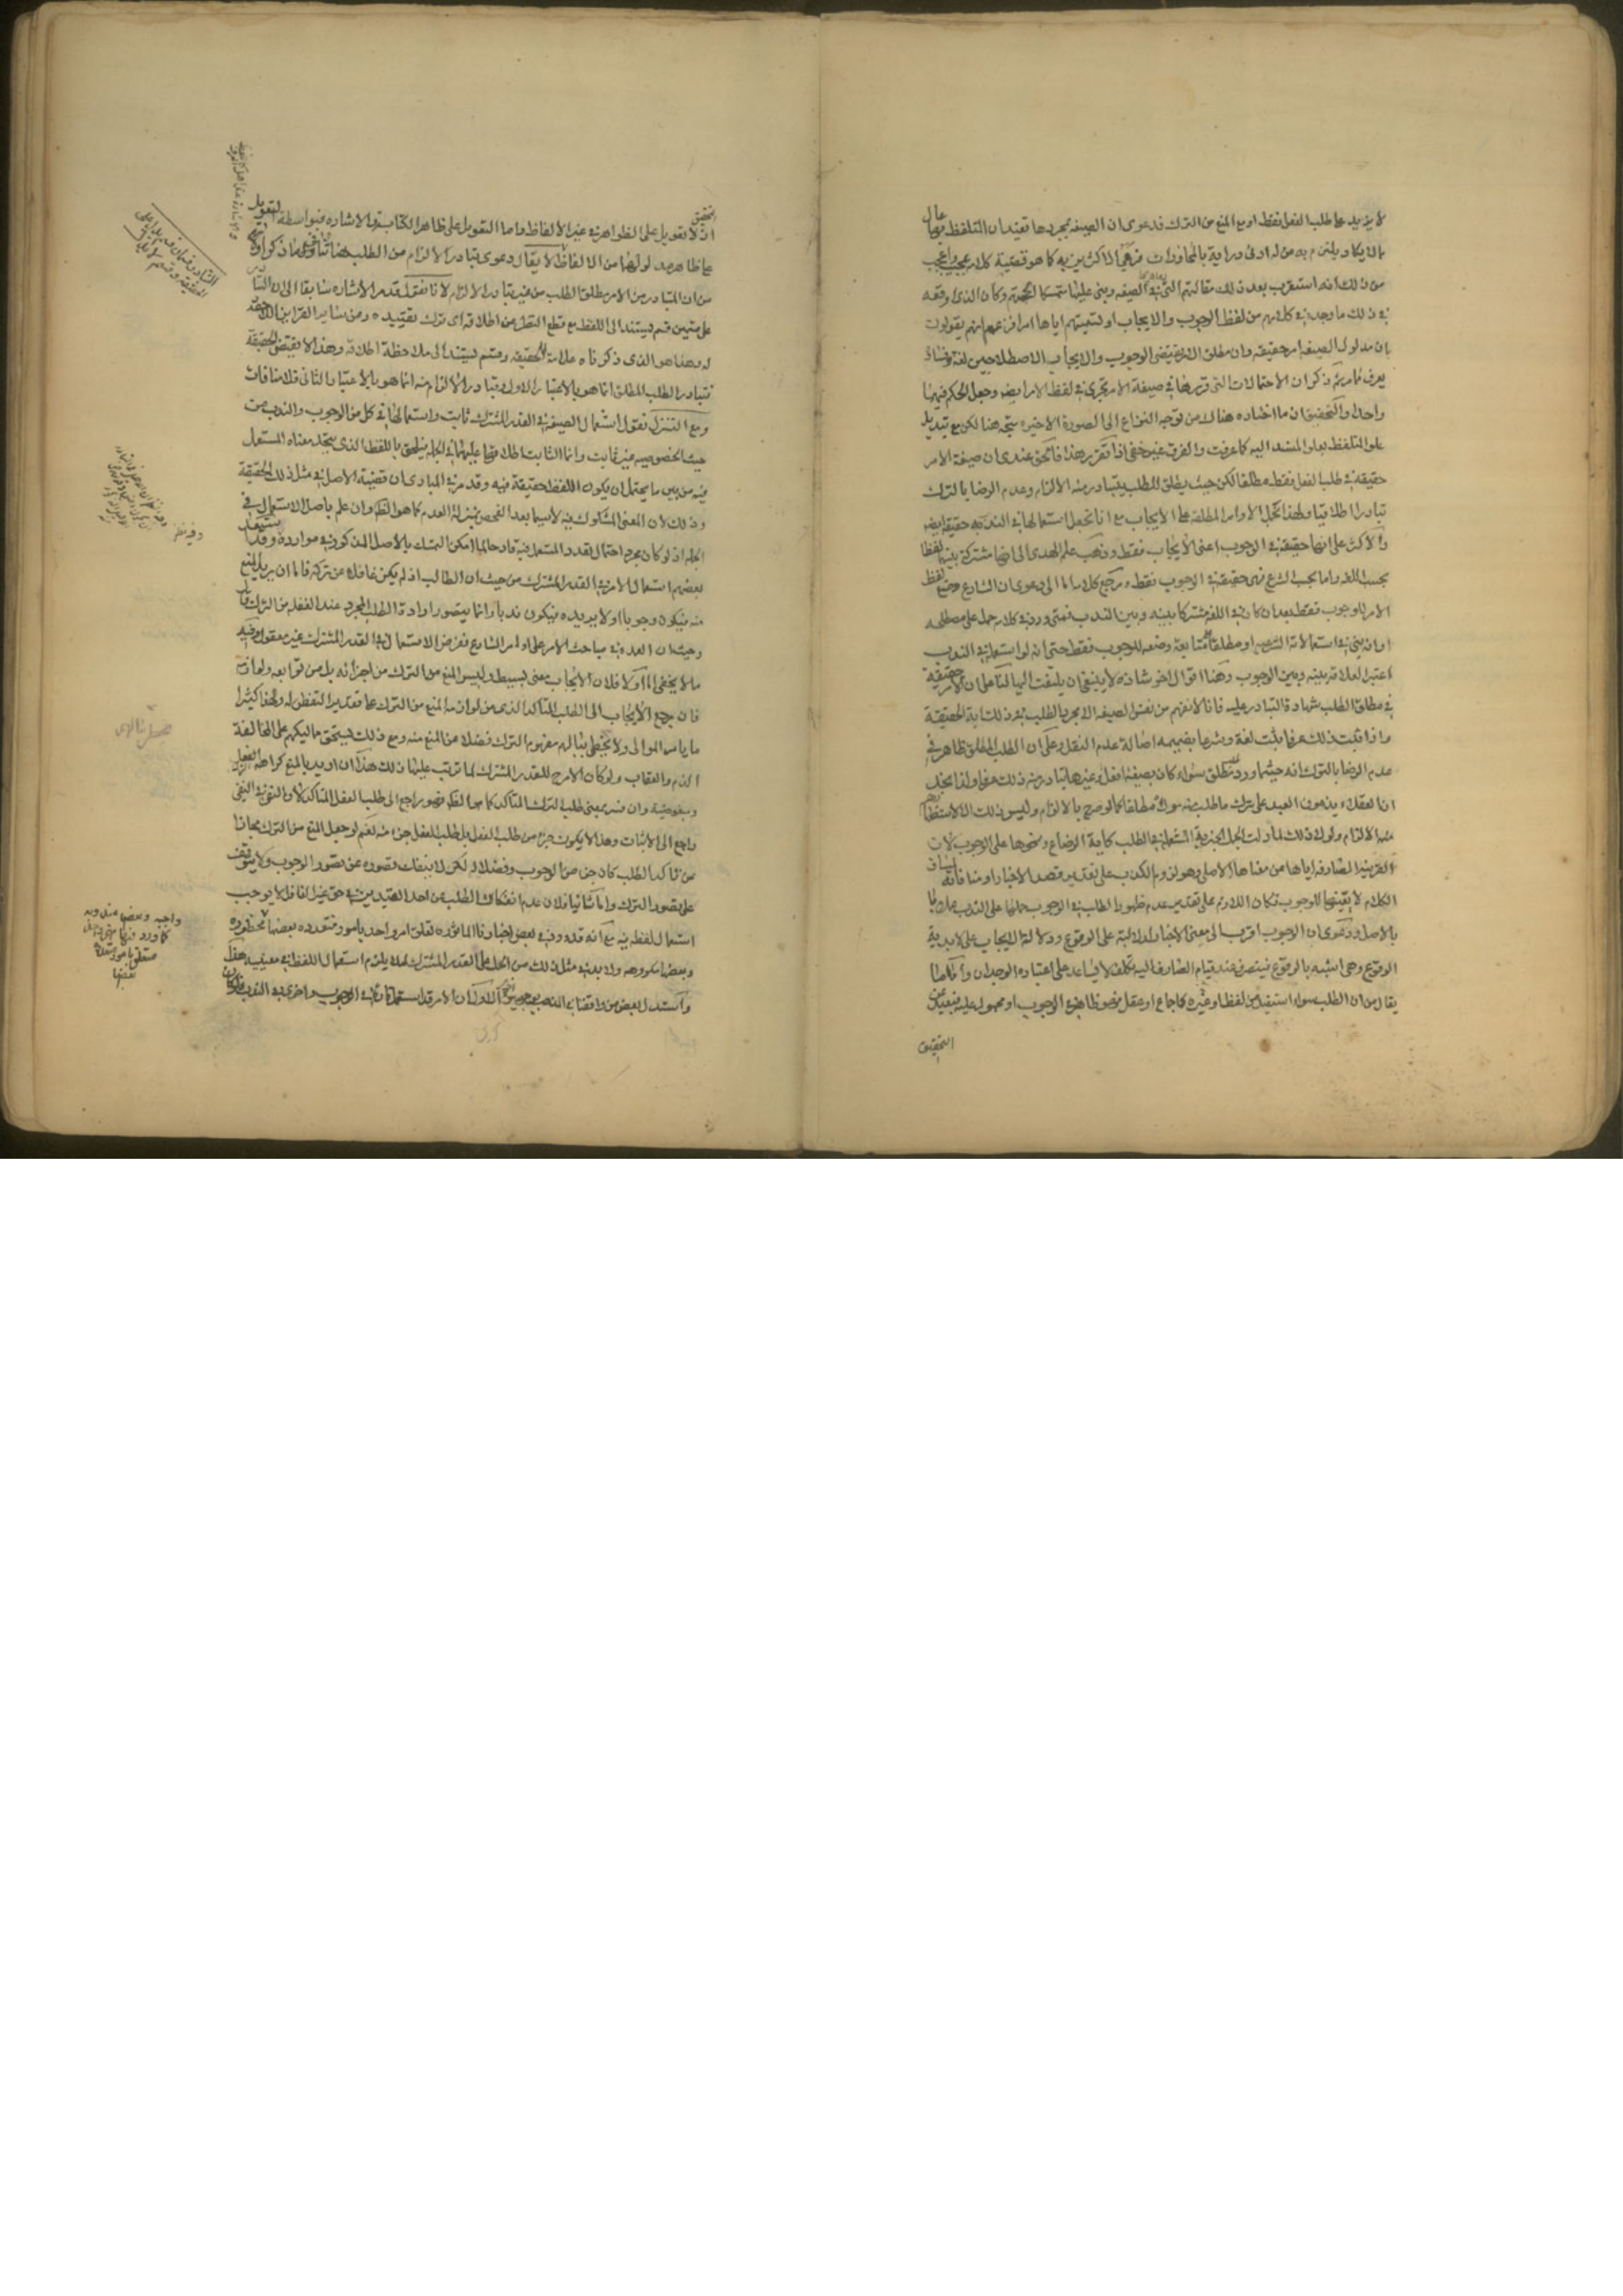 لا يزيد على طلب الفعل فقط او مع المنع من الترك فدعوى ان الصيغة بمجردها تفيد ان التلفظ بها عال
مما لا يكاد يلتزم به من له ادنى دراية بالمحاورات فنهى الاكثرين به كما هو قضية كلامه عجيب واعجب
من ذلك انه استغرب بعد ذلك مقالتهم في الصيغه وبنى عليها متمسكا بحجة وكان الذى اوقعه
في ذلك ما وجده في كلامهم من لفظ الوجوب والايجاب او تسميتهم اياها امرا فزعم انهم يقولون
بان مدلول الصيغه امر حقيقه وان مطلق الامر يقتضى الوجوب والايجاب الاصطلاحيين لغة وفساده
يعرف مما مر ثم ذكر ان الاحتمالات التى قررها في صيغة الامر تجرى في لفظ الامر ايضا وجعل الحكم فيهما
واحدا والتحقيق ان ما اختاره هناك من توجه النزاع الى الصورة الاخيره يتجه هنا لكن مع تبديل
علو المتلفظ بعلو المسند اليه كما عرفت والفرق غير خفى اذا تقرر هذا فالحق عندى ان صيغة الامر
حقيقة في طلب الفعل فقط مطلقا لكن حيث يطلق للطلب يتبادر منه الالزام وعدم الرضا بالترك
تبادرا اطلاقيا ولهذا نحمل الاوامر المطلقة على الايجاب مع انا نجعل استعمالها في الندب حقيقة ايضا
والاكثر على انها حقيقة في الوجوب اعنى الايجاب فقط وذهب علم الهدى الى انها مشتركة بينهما لفظا
بحسب اللغه واما بحسب الشرع فهى حقيقة في الوجوب فقط ومرجع كلامه الى دعوى ان الشارع وضع لفظ
الامر للوجوب فقط بعد ان كان في اللغة مشتركا بينه وبين الندب فمتى ورد في كلامه حمل على مصطلحه
او انه بنى في استعمالاته الشرعيه او مطلقا على متابعة وضعه للوجوب فقط حتى انه لو استعمله في الندب
اعتبر العلاقة بينه وبين الوجوب وهنا اقوال اخر شاذة لا ينبغى ان يلتفت اليها لنا على ان الامر حقيقة
في مطلق الطلب شهادة التبادر عليه فانا لا نفهم من نفس الصيغه الا مجرد الطلب وذلك اية الحقيقة
واذا ثبت ذلك عرفا يثبت لغة وشرعا بضميمه اصالة عدم النقل وعلى ان الطلب المطلق ظاهر في
عدم الرضا بالترك انه حيثما ورد طلب مطلق سواء كان بصيغة افعل او غيرها تبادر منه ذلك عرفا ولذا نجد
ان العقلاء يذمون العبد على ترك ما طلب منه مولاه مطلقا كما لو صرح بالالزام وليس ذلك الا لاستظهارهم
منه الالزام ولولا ذلك لما دلت الجمل الخبرية المستعملة في الطلب كاية الرضاع ونحوها على الوجوب لان
القرينة الصارفه اياها من معناها الاصلى وهو لزوم الكذب على تقدير قصد الاخبار او منافاته لمساق
الكلام لا يعينها للوجوب فكان اللازم على تقدير عدم ظهور الطلب في الوجوب حملها على الندب عملا
بالاصل ودعوى ان الوجوب اقرب الى معنى الاخبار لدلالته على الوقوع ودلالة الايجاب على لابدية
الوقوع وهى اشبه بالوقوع فينصرف عند قيام الصارف اليه تكلف لا يساعد على اعتباره الوجدان واما ما
يقال من ان الطلب سواء استفيد من لفظ او غيره كاجماع او عقل فهو ظاهر في الوجوب او محمول عليه فبعيد عن
التحقيق
التحقيق
اذ لا تعويل على الظواهر في غير الالفاظ واما التعويل على ظاهر الكتابة والاشاره فبواسطة التعويل
على ظاهر مدلولهما من الالفاظ لا يقال دعوى تبادر الالزام من الطلب هنا تنافى ما ذكر اولا
من ان المتبادر من الامر مطلق الطلب من غير تبادر الالزام لانا نقول قد مر الاشاره سابقا الى ان التبادر
على قسمين قسم يستند الى اللفظ مع قطع النظر عن اطلاقه اى ترك تقييده ومن ساير القراين اللاحقة
له وهذا هو الذى ذكرناه علامة للحقيقه وقسم يستند الى ملاحظة اطلاقه وهذا لا يقتضى الحقيقة
فتبادر الطلب المطلق انما هو بالاعتبار الاول وتبادر الالزام منه انما هو بالاعتبار الثانى فلا منافات
ومع التنزل نقول استعمال الصيغة في القدر المشترك ثابت واستعمالها في كل من الوجوب والندب من
حيث الخصوصيه غير ثابت وانما الثابت اطلاقها عليهما في الجمله فيلحق باللفظ الذى يتحد معناه المستعمل
فيه من بين ما يحتمل ان يكون اللفظ حقيقة فيه وقد مر في المبادى ان قضية الاصل في مثل ذلك الحقيقة
وذلك لان المعنى المشكوك فيه لا سيما بعد الفحص بمنزلة العدم كما هو الظاهر وان علم باصل الاستعمال في
الجمله اذ لو كان مجرد احتمال تعدد المستعمل فيه قادحا لما امكن التمسك بالاصل المذكور في موارده وقد استبعد
بعضهم استعمال الامر في القدر المشترك من حيث ان الطالب اذا لم يكن غافلا عن تركه فاما ان يريد المنع
منه فيكون وجوبا او لا يريده فيكون ندبا وانما يتصور ارادة الطلب المجرد عند الغفلة من الترك قال
وحيث ان العمده في مباحث الامر على اوامر الشارع ففرض الاستعمال في القدر المشترك غير معقول وفيه
ما لا يخفى اما اولا فلان الايجاب معنى بسيط وليس المنع من الترك من اجزائه بل من توابعه ولوازمه
فان مرجع الايجاب الى الطلب المتاكد الذى من لوازمه المنع من الترك على تقدير التفطن له ولهذا كثيرا
ما يامر الموالى ولا يخطر ببالهم مفهوم الترك فضلا عن المنع منه ومع ذلك يستحق مماليكهم على المخالفة
الذم والعقاب ولو كان الامر للقدر المشترك لما ترتب عليها ذلك هذا ان اريد بالمنع كراهة الفعل
ومبغوضيته وان فسر بمعنى طلب الترك المتاكد كما هو الظاهر فهو راجع الى طلب الفعل المتاكد لان النفى في النفى
راجع الى الاثبات وهذا لا يكون جزء من طلب الفعل بل طلب الفعل جزء منه نعم لو جعل المنع من الترك مجازا
من تاكد الطلب كان جزء من الوجوب وفصلا له لكن لا ينفك تصوره عن تصور الوجوب ولا يتوقف
على تصور الترك واما ثانيا فلان عدم انفكاك الطلب عن احد القيدين في حق غير الغافل لا يوجب
استعمال لفظه فيه مع انه قد ورد في بعض اخبارنا الماثوره تعلق امر واحد بامور متعدده بعضها
وبعضها مكروهه ولا بد في مثل ذلك من الحمل على القدر المشترك لئلا يلزم استعمال اللفظ في معنييه هذا
واستدل بعض من وافقنا في المذهب بوجهين الاول ان الامر قد استعمل تارة في الوجوب واخرى في الندب
وفيه نظر
واجبه وبعضها مندوبه
كما ورد فيها
متعلق بامور متعدده
بعضها